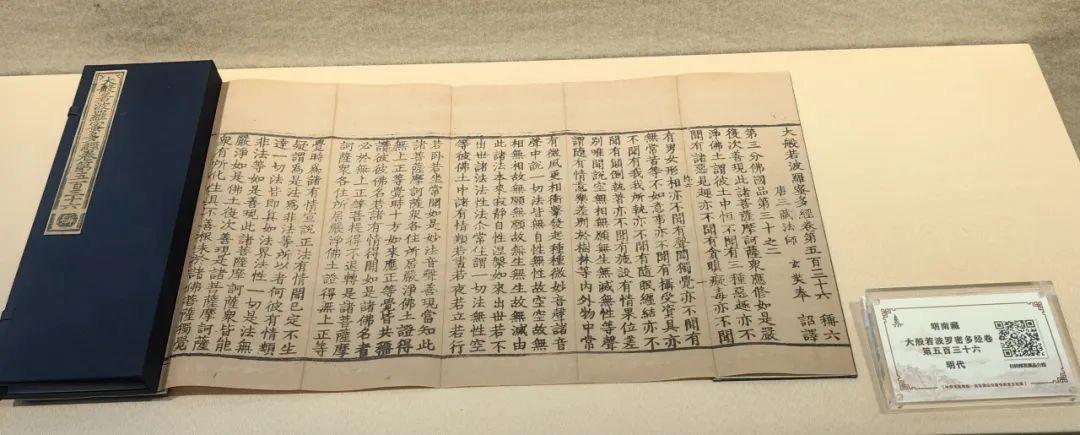 大般若波羅蜜多經卷第五百三十六
大般若波羅蜜多經卷第五百三十六 稱六
唐三藏法師 玄奘奉 詔譯
第三分佛國品第三十之二
復次善現此諸菩薩摩訶薩衆應修如是嚴
淨佛土謂彼土中恒不聞有三種惡趣亦不
聞有諸惡見趣亦不聞有貪瞋癡毒亦不聞
有男女形相亦不聞有聲聞獨覺亦不聞有
無常苦等不如意事亦不聞有攝受資具亦
不聞我我所執亦不聞有隨眠纏結亦不
聞有顛倒執著亦不聞有施設有情果位差
別唯聞說空無相無願無生無滅無性等聲
謂隨有情意樂差別於樹林等內外物中常
有微風更相衝擊發起種種微妙音聲諸音
聲中說一切法皆無自性無性故空空故無
相無相故無願無願故無生無生故無滅由
此諸法本來寂靜自性涅槃如來出世若不
出世諸法法性法尒常住謂一切法無性空
等彼佛土中諸有情類若晝若夜若立若行
若卧若坐常聞如是妙法音聲善現當知此
諸菩薩摩訶薩衆各住所居嚴淨佛土證得
無上正等覺時十方如來應正等覺皆共稱
讚彼佛名若諸有情得聞如是諸佛名者
必於無上正等菩提得不退轉是諸菩薩摩
訶薩衆各住所居嚴淨佛土證得無上正等
覺時為諸有情宣說正法有情聞已定不生
疑謂為是法為非法等所以者何彼有情類
達一切法皆即真如法界法性一切是法無
非法等如是善現此諸菩薩摩訶薩衆皆能
嚴淨如是佛土復次善現是諸菩薩摩訶薩
衆有所化生具不善根未於諸佛菩薩獨覺
明南藏
大般若波罗密多经卷
第五百三十六
明代